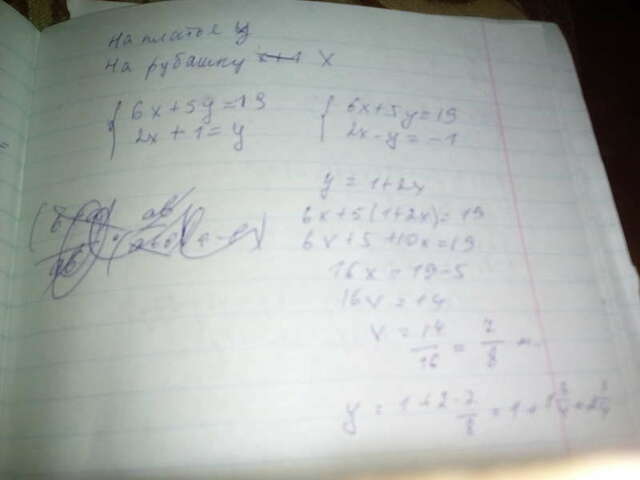 На платье y
На рубашку x
{ 6x+5y=19
2x+1=y
{ 6x+5y=19
2x-y=-1
y=1+2x
6x+5(1+2x)=19
6x+5+10x=19
16x=19-5
16x=14
x=14/16=7/8 м.
y=1+2·7/8=1+1 3/4=2 3/4